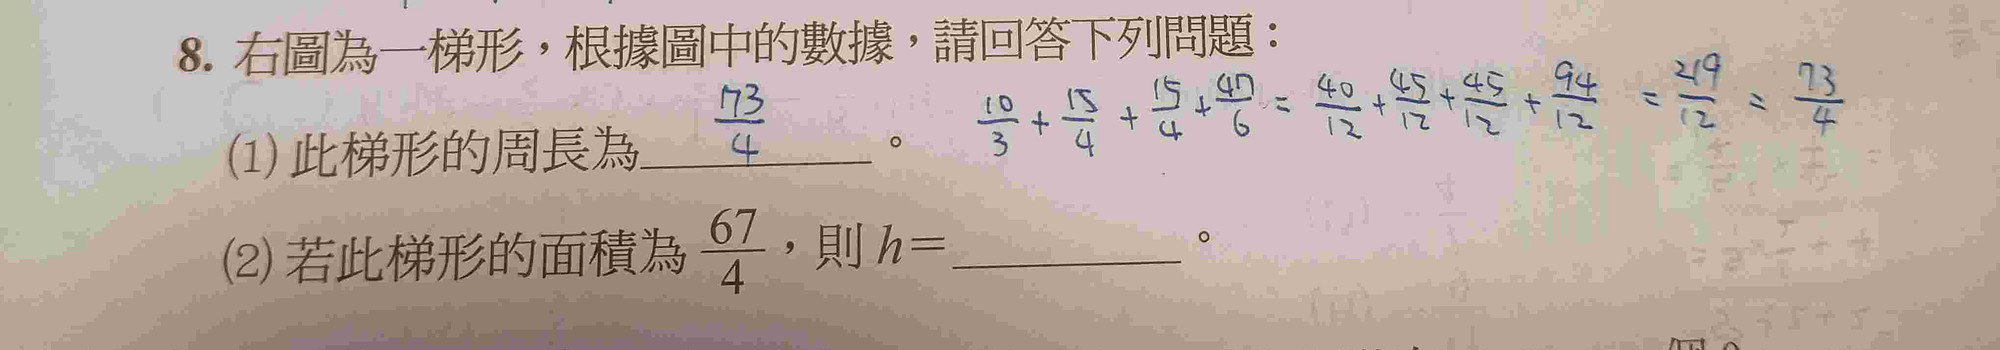 8. 右圖為一梯形，根據圖中的數據，請回答下列問題：
(1) 此梯形的周長為 73/4 。 10/3 + 15/4 + 15/4 + 47/6 = 40/12 + 45/12 + 45/12 + 94/12 = 219/12 = 73/4
(2) 若此梯形的面積為 67/4，則 h=＿＿＿＿。